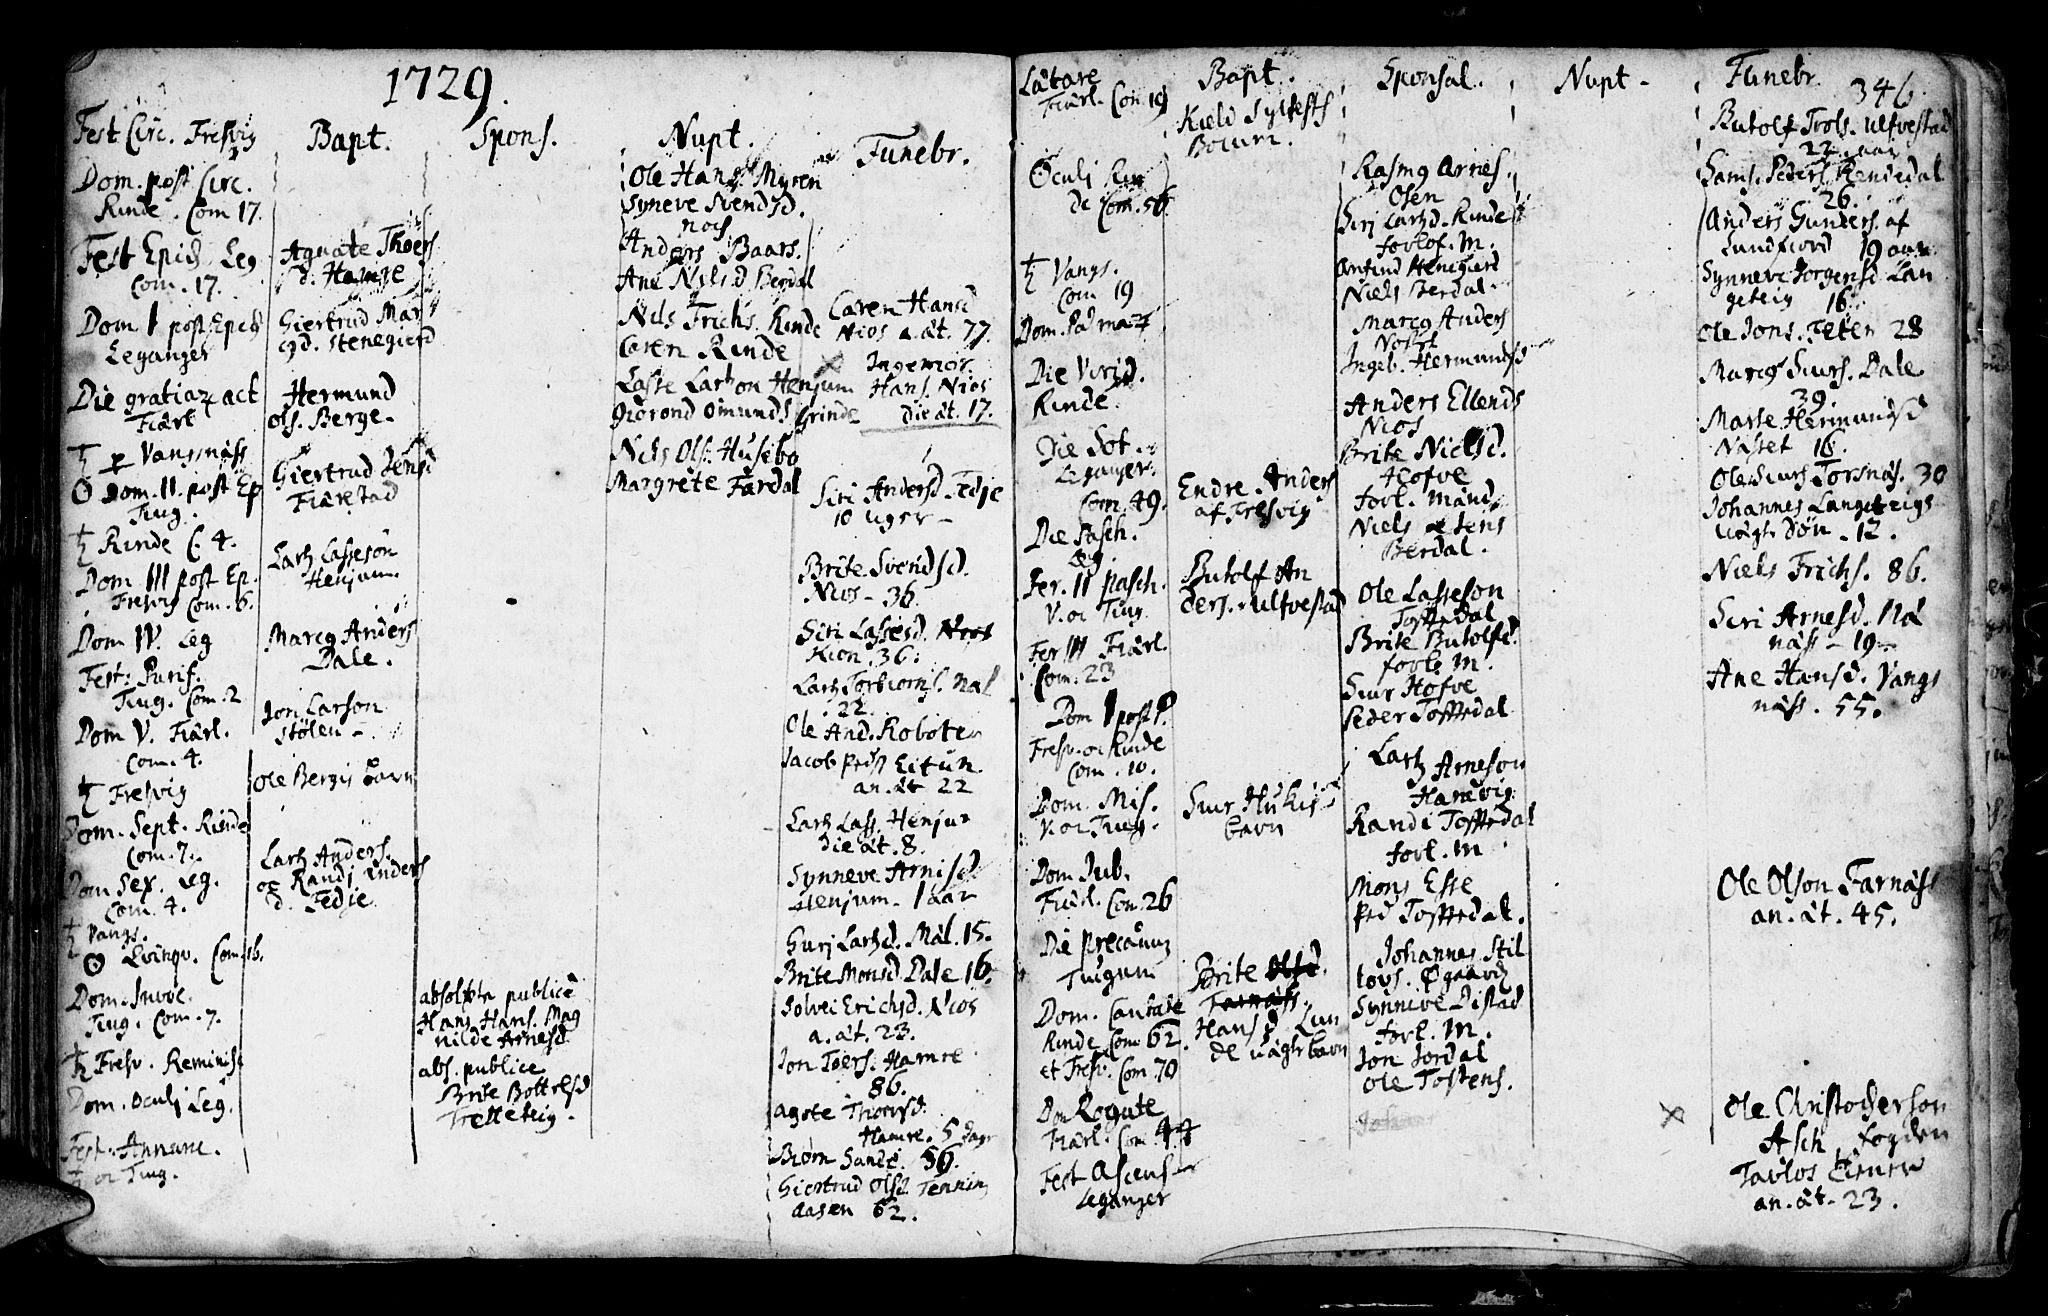 1729.
Fest Circ. Fresvig
Dom. post Circ.
Rinde. Com 17.
Fest Epiph Leg
Com. 17.
Dom I post Epiph
Leganger
Die gratiar act
Fiärl
Vangsnäss
Dom. II. post Ep
Tiug.
Rinde C. 4.
Dom III post Ep.
Fresvig Com. 6.
Dom IV. Leg
Fest: Purif.
Tiug. Com. 2
Dom V. Fiärl.
Com. 4.
Fresvig
Dom. Sept. Rinde
Com. 7.
Dom Sex. Leg.
Com. 4.
Vangs.
Com. 16.
Dom. Invoc.
Tiug. Com. 7.
Fresv. Reminisc
Dom. Oculj Leg.
Fest. Annunc.
oc Tiug.
Bapt.
Agnate Thoers
d. Hamre
Giertrud Mar
gd. Stenegierd
Hermund
Ols. Berge
Giertrud Jensd
Fiärestad
Larh Lasseson
Henjum.
Marcg Anders
Dale.
Jon Larson
Stölen
Ole Bergis barn
Larh Anders.
oc Randj Anders
d. Fedje
Spons.
absolpta publice
Hans Hans. Mag
nilde Arnesd
abs. publice
Brite Bottolfsd
Tretteteig.
Nupt.
Ole Hans Myren
Syneve Svendsd.
nos
Anders Baars.
Ane Nilsd Berdal
Nils Frichs. Rinde
Caren Rinde
Lasse Larhon Henjum
Giörond Omunds Grinde
Nils Ols. Husebo
Margrete Färdal
Funebr.
Caren Hansd
Nios a. ät. 77.
Ingemior
Hans. Nios
die ät. 17.
Siri Andersd. Fedje
10 uger
Brite Svendsd.
Nios - 36
Siri Lassesd. Nios
Kion. 36.
Larh Torbiorns. Näl
22
Ole And. Robote
Jacob Peds Eitun.
an. ät 22
Larh Lass. Henjum
die ät. 8.
Synneve Arnisd
Henjum. 1 aar
Gurj Larhd. Mäl. 15.
Brite Monsd Dale 16.
Solvei Erichsd. Nios
a. ät. 23.
Jon Toers. Hamre
86.
Agote Thoersd.
Hamre. 5 dage
Biörn Sande. 59.
Giertrud Olsd. Tenning
aasen 62.
Lätare
Fiärl. Com. 19
Oculj Rin
de Com. 56
Vangs.
Com 19
Dom. Palmar
Die Virid.
Rinde
Die Sot.
Leganger.
Com. 49.
Die Pasch.
Leg.
Fer. II pasch.
V. oc Tiug.
Fer III Fiärl.
Com. 23
Dom I post P.
Fresv. oc Rinde
Com. 10.
Dom. Mis.
V. oc Tiug.
Dom Jub.
Fiärl. Com. 26
Die precaum
Tiugum
Dom. Cantate
Rinde Com 62.
et Fresv. Com 70
Dom Rogate
Fiärl. Com 44
Fest Ascens
Leganger
Bapt.
Kield Sylfests
Boium.
Endre Anders
af Fresvig
Butolf An
ders. Ulfvestad
Siur Hukis
barn
Brite Olsd.
Farnäss.
Hans d. Lun
de uägte barn
Sponsal.
Rasmg Arnes.
Osen
Sirj Larhd. Rinde
forlof. M.
Anfind Henigierd
Niels Berdal.
Marcg Anders
Nosset
Ingeb. Hermundsd
Anders Ellends
Nios
Brite Nielsd.
Hofve
forl. Mänd
Niels oc Jens
Berdal.
Ole Lasseson
Tofftedal
Brite Butolfsd.
forl. M.
Siur Hofve
Peder Tofftedal
Larh Arneson
Hamvig
Randi Tofftedal
forl. M
Mons Esse
Ped Tofftedal.
Johannes Stil
tovs. Ögaard
Synneve Distad
forl. M.
Jon Jordal
Ole Tostens.
Nupt -
Funebr. 346.
Butolf Trols. Ulfvestad
22 aar
Sams. Peders Rendedal
26.
Anders Gunders. af
Sundfiord 19 aar.
Synneve Jorgensd Lan
geteig 16.
Ole Jons. Feten 28
Marcg Siurs. Dale
39.
Marse Hermundsd
Näset 16.
Ole Siurs Torsnäs. 30
Johannes Langeteigs
uägt. Søn. 12.
Niels Frichs. 86.
Siri Arnesd. Nä
näss - 19
Ane Hansd. Vangs
näss. 55.
Ole Olson Farnäss
an. ät. 45.
Ole Christopherson
Asch, fogden
an. ät. 23.